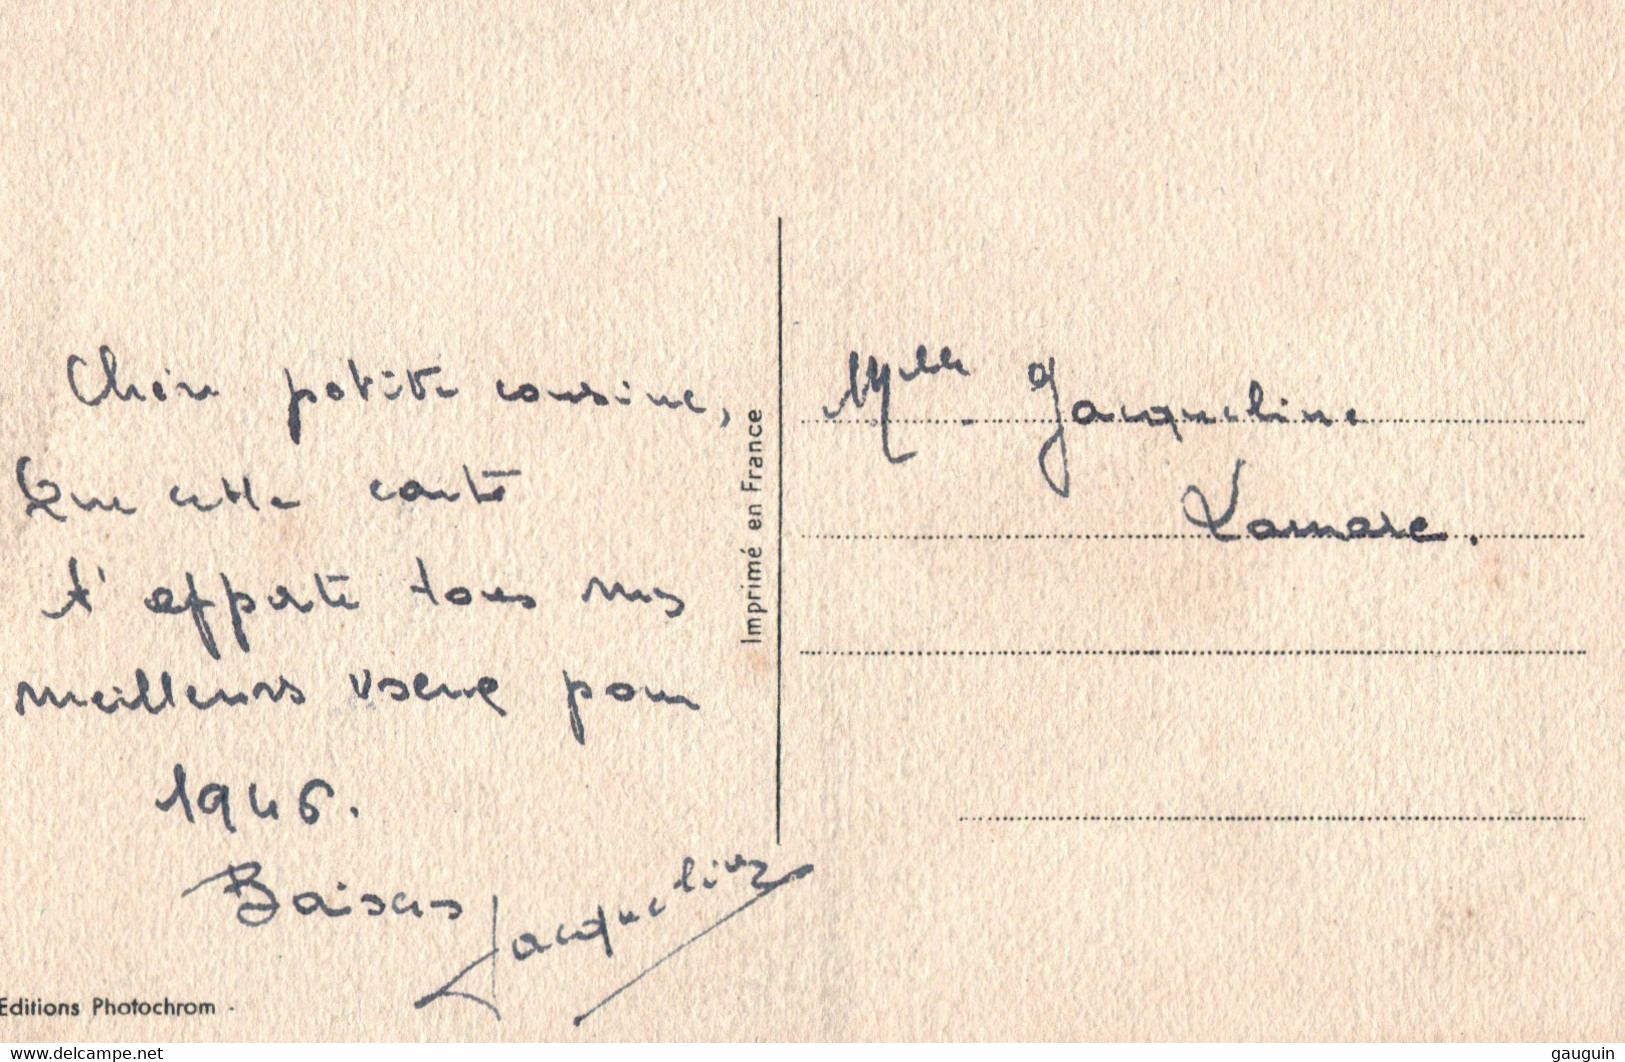 Chère petite cousine,
Que cette carte
t'apporte tous mes
meilleurs vœux pour
1946.
Baisers Jacqueline
Editions Photochrom
Imprimé en France
Mlle Jacqueline
Lamare.
www.delcampe.net
gauguin